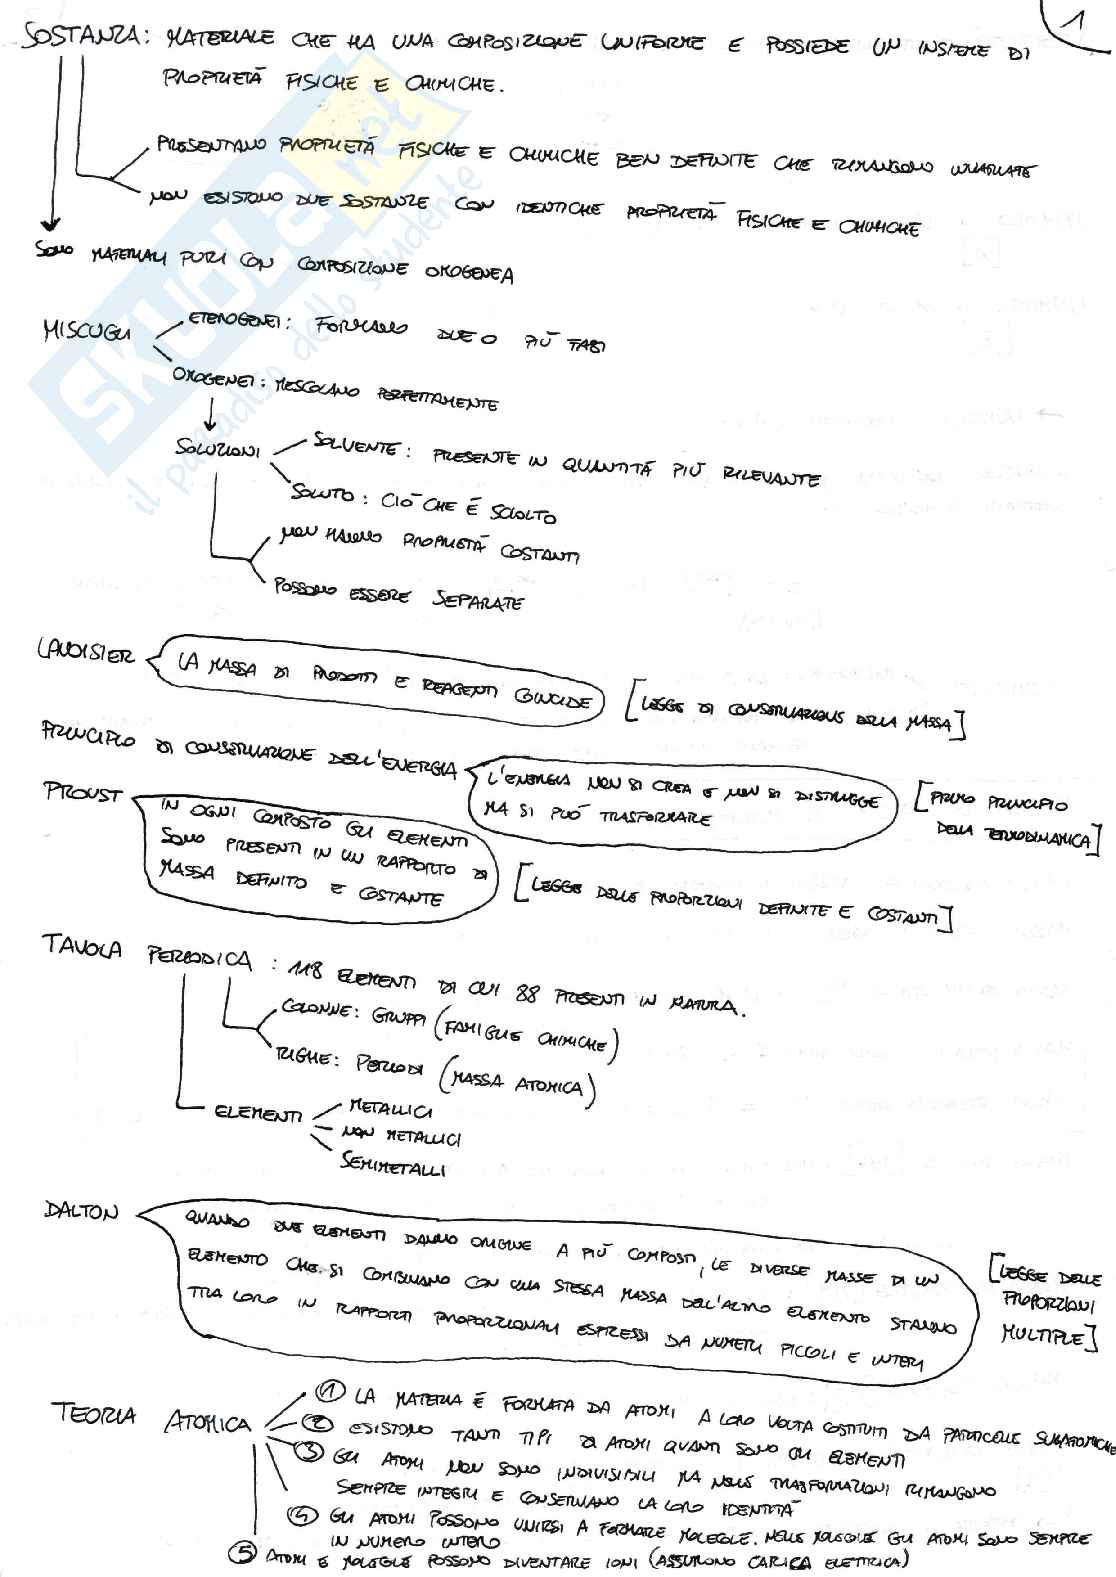 1
SOSTANZA: MATERIALE CHE HA UNA COMPOSIZIONE UNIFORME E POSSIEDE UN INSIEME DI
PROPRIETÀ FISICHE E CHIMICHE.
PRESENTANO PROPRIETÀ FISICHE E CHIMICHE BEN DEFINITE CHE RIMANGONO INVARIATE
NON ESISTONO DUE SOSTANZE CON IDENTICHE PROPRIETÀ FISICHE E CHIMICHE
SONO MATERIALI PURI CON COMPOSIZIONE OMOGENEA
MISCUGLI
ETEROGENEI: FORMANO DUE O PIÙ FASI
OMOGENEI: MESCOLANO PERFETTAMENTE
SOLUZIONI
SOLVENTE: PRESENTE IN QUANTITÀ PIÙ RILEVANTE
SOLUTO: CIÒ CHE È SCIOLTO
NON HANNO PROPRIETÀ COSTANTI
POSSONO ESSERE SEPARATE
LAVOISIER
LA MASSA DI PRODOTTI E REAGENTI COINCIDE
[LEGGE DI CONSERVAZIONE DELLA MASSA]
PRINCIPIO DI CONSERVAZIONE DELL'ENERGIA
L'ENERGIA NON SI CREA E NON SI DISTRUGGE
MA SI PUÒ TRASFORMARE
[PRIMO PRINCIPIO
DELLA TERMODINAMICA]
PROUST
IN OGNI COMPOSTO GLI ELEMENTI
SONO PRESENTI IN UN RAPPORTO DI
MASSA DEFINITO E COSTANTE
[LEGGE DELLE PROPORZIONI DEFINITE E COSTANTI]
TAVOLA PERIODICA: 118 ELEMENTI DI CUI 88 PRESENTI IN NATURA.
COLONNE: GRUPPI (FAMIGLIE CHIMICHE)
RIGHE: PERIODI (MASSA ATOMICA)
ELEMENTI
METALLICI
NON METALLICI
SEMIMETALLI
DALTON
QUANDO DUE ELEMENTI DANNO ORIGINE A PIÙ COMPOSTI, LE DIVERSE MASSE DI UN
ELEMENTO CHE SI COMBINANO CON UNA STESSA MASSA DELL'ALTRO ELEMENTO STANNO
TRA LORO IN RAPPORTI PROPORZIONALI ESPRESSI DA NUMERI PICCOLI E INTERI
[LEGGE DELLE
PROPORZIONI
MULTIPLE]
TEORIA ATOMICA
1 LA MATERIA È FORMATA DA ATOMI A LORO VOLTA COSTITUITI DA PARTICELLE SUBATOMICHE
2 ESISTONO TANTI TIPI DI ATOMI QUANTI SONO GLI ELEMENTI
3 GLI ATOMI NON SONO INDIVISIBILI MA NELLE TRASFORMAZIONI RIMANGONO
SEMPRE INTEGRI E CONSERVANO LA LORO IDENTITÀ
4 GLI ATOMI POSSONO UNIRSI A FORMARE MOLECOLE. NELLE MOLECOLE GLI ATOMI SONO SEMPRE
IN NUMERO INTERO
5 ATOMI E MOLECOLE POSSONO DIVENTARE IONI (ASSUMONO CARICA ELETTRICA)
SKUOLA.net
il paradiso dello studente